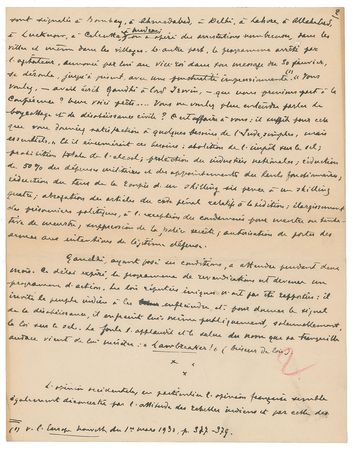 2
sont signalés à Bombay, à Ahmedabad, à Delhi, à Lahore, à Allahabad,
à Lucknow, à Calcutta. On a opéré des arrestations nombreuses, dans les
villes et même dans les villages. D'autre part, le programme arrêté par
l'agitateur, annoncé par lui au vice-roi dans son message du 30 février,
se déroule, jusqu'à présent, avec une ponctualité impressionnante (1). Vous
voulez, — avait écrit Gandhi à lord Irwin, — que nous prenions part à la
Conférence ? Nous voici prêts... Vous ne voulez plus entendre parler de
boycottage et de désobéissance civile ? C'est affaire à vous : il suffit pour cela
que vous donniez satisfaction à quelques besoins de l'Inde, simples, mais
essentiels. » Et il énumérait ces besoins : abolition de l'impôt sur le sel ;
prohibition totale de l'alcool ; protection des industries nationales ; réduction
de 50 % des dépenses militaires et des appointements des hauts fonctionnaires ;
réduction du taux de la roupie d'un shilling six pence à un shilling
quatre ; abrogation des articles du code pénal relatifs à la sédition ; élargissement
des prisonniers politiques, à l'exception des condamnés pour meurtre ou tentative
de meurtre ; suppression de la police secrète ; autorisation de porter des
armes aux intentions de légitime défense.
Gandhi, ayant posé ses conditions, a attendu pendant deux
mois. Ce délai expiré, le programme de revendications est devenu un
programme d'action. Les lois réputées iniques n'ont pas été rapportées : il
invite le peuple indien à les enfreindre et pour donner le signal
de la désobéissance, il enfreint lui-même publiquement, solennellement,
la loi sur le sel. La foule l'applaudit et le salue du nom que sa tranquille
audace vient de lui mériter : « Lawbreaker » (briseur de lois).
x
x x
L'opinion occidentale, en particulier l'opinion française semble
également déconcertée par l'attitude des rebelles indiens et par celle des
(1) V. l'Europe nouvelle du 1er mars 1930, p. 367-379.